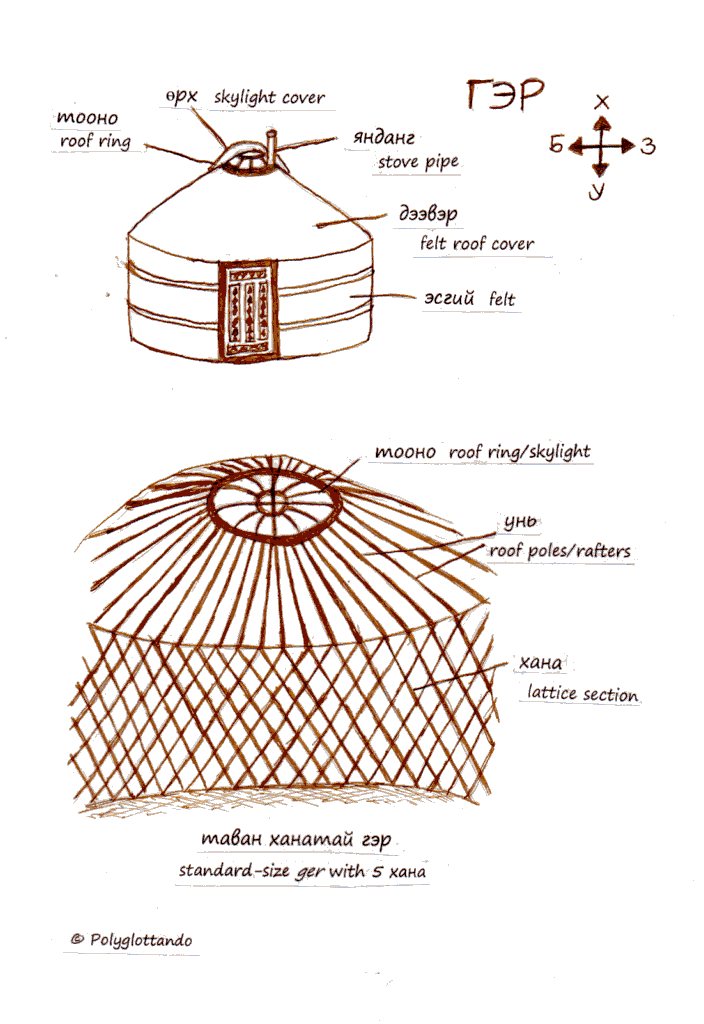 ГЭР
Х
Б З
У
өрх skylight cover
тооно
roof ring
янданг
stove pipe
дээвэр
felt roof cover
эсгий felt
тооно roof ring/skylight
унь
roof poles/rafters
хана
lattice section
таван ханатай гэр
standard-size ger with 5 хана
© Polyglottando